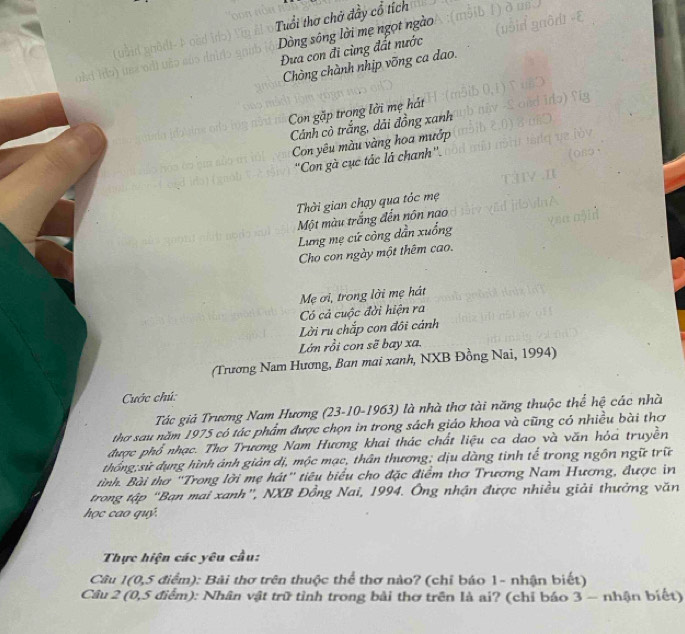 Tuổi thơ chở đầy cổ tích
Dòng sông lời mẹ ngọt ngào
Đưa con đi cùng đất nước
Chòng chành nhịp võng ca dao.
Con gặp trong lời mẹ hát
Cánh cò trắng, dải đồng xanh
Con yêu màu vàng hoa mướp
"Con gà cục tác lá chanh".
Thời gian chạy qua tóc mẹ
Một màu trắng đến nôn nao
Lưng mẹ cứ còng dần xuống
Cho con ngày một thêm cao.
Mẹ ơi, trong lời mẹ hát
Có cả cuộc đời hiện ra
Lời ru chắp con đôi cánh
Lớn rồi con sẽ bay xa.
(Trương Nam Hương, Ban mai xanh, NXB Đồng Nai, 1994)
Cước chú:
Tác giả Trương Nam Hương (23-10-1963) là nhà thơ tài năng thuộc thế hệ các nhà
thơ sau năm 1975 có tác phẩm được chọn in trong sách giáo khoa và cũng có nhiều bài thơ
được phổ nhạc. Thơ Trương Nam Hương khai thác chất liệu ca dao và văn hóa truyền
thống;sử dụng hình ảnh giản dị, mộc mạc, thân thương; dịu dàng tinh tế trong ngôn ngữ trữ
tình. Bài thơ "Trong lời mẹ hát" tiêu biểu cho đặc điểm thơ Trương Nam Hương, được in
trong tập "Ban mai xanh", NXB Đồng Nai, 1994. Ông nhận được nhiều giải thưởng văn
học cao quý.
Thực hiện các yêu cầu:
Câu 1(0,5 điểm): Bài thơ trên thuộc thể thơ nào? (chỉ báo 1- nhận biết)
Câu 2 (0,5 điểm): Nhân vật trữ tình trong bài thơ trên là ai? (chỉ báo 3 – nhận biết)